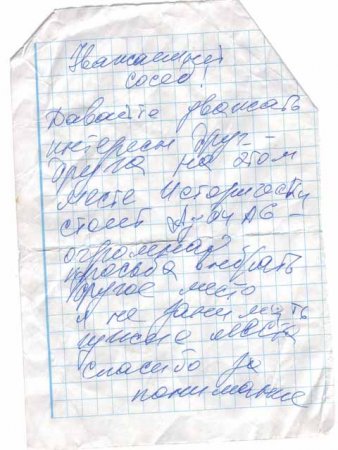 Уважаемый
сосед!
Давайте уважать
интересы друг –
друга на этом
месте исторически
стоит Ауди А6 –
огромная
просьба выбрать
другое место
и не занимать
чужие места
спасибо за
понимание